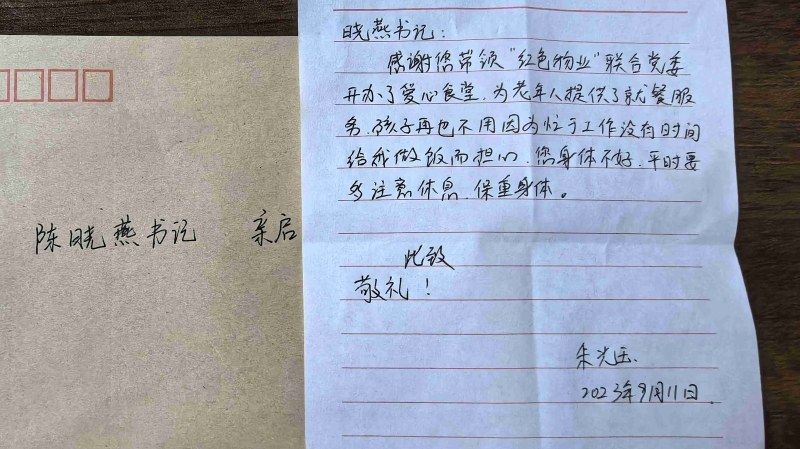 陈晓燕书记 亲启
晓燕书记:
感谢您带领“红色物业”联合党委
开办了爱心食堂,为老年人提供了就餐服
务,孩子再也不用因为忙于工作没有时间
给我做饭而担心,您身体不好,平时要
多注意休息,保重身体。
此致
敬礼!
朱光玉
2023年9月11日